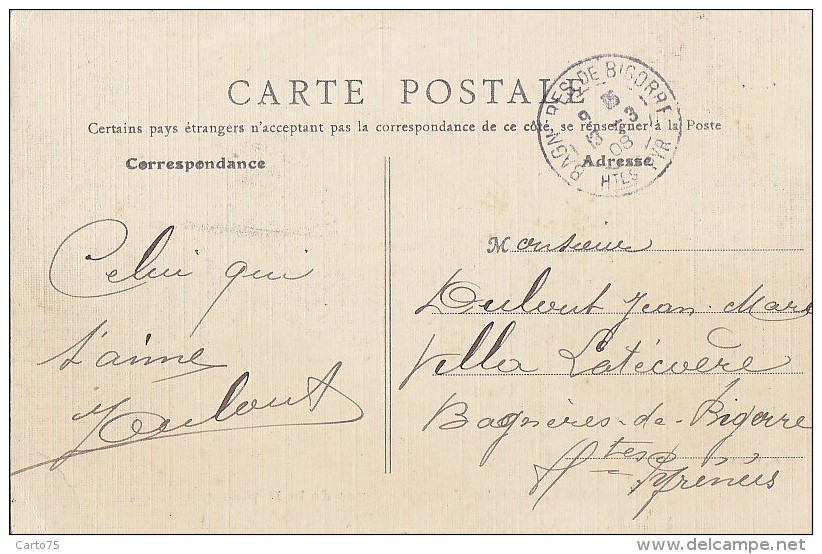 CARTE POSTALE
Certains pays étrangers n'acceptant pas la correspondance de ce côté, se renseigner à la Poste
Correspondance
Adresse
BAGNÈRES DE BIGORRE
HTES PYR
08
Celui qui
t'aime
Monsieur
Jean-Marc
Villa Latécoère
Bagnères-de-Bigorre
Htes Pyrénées
Carto75
www.delcampe.net